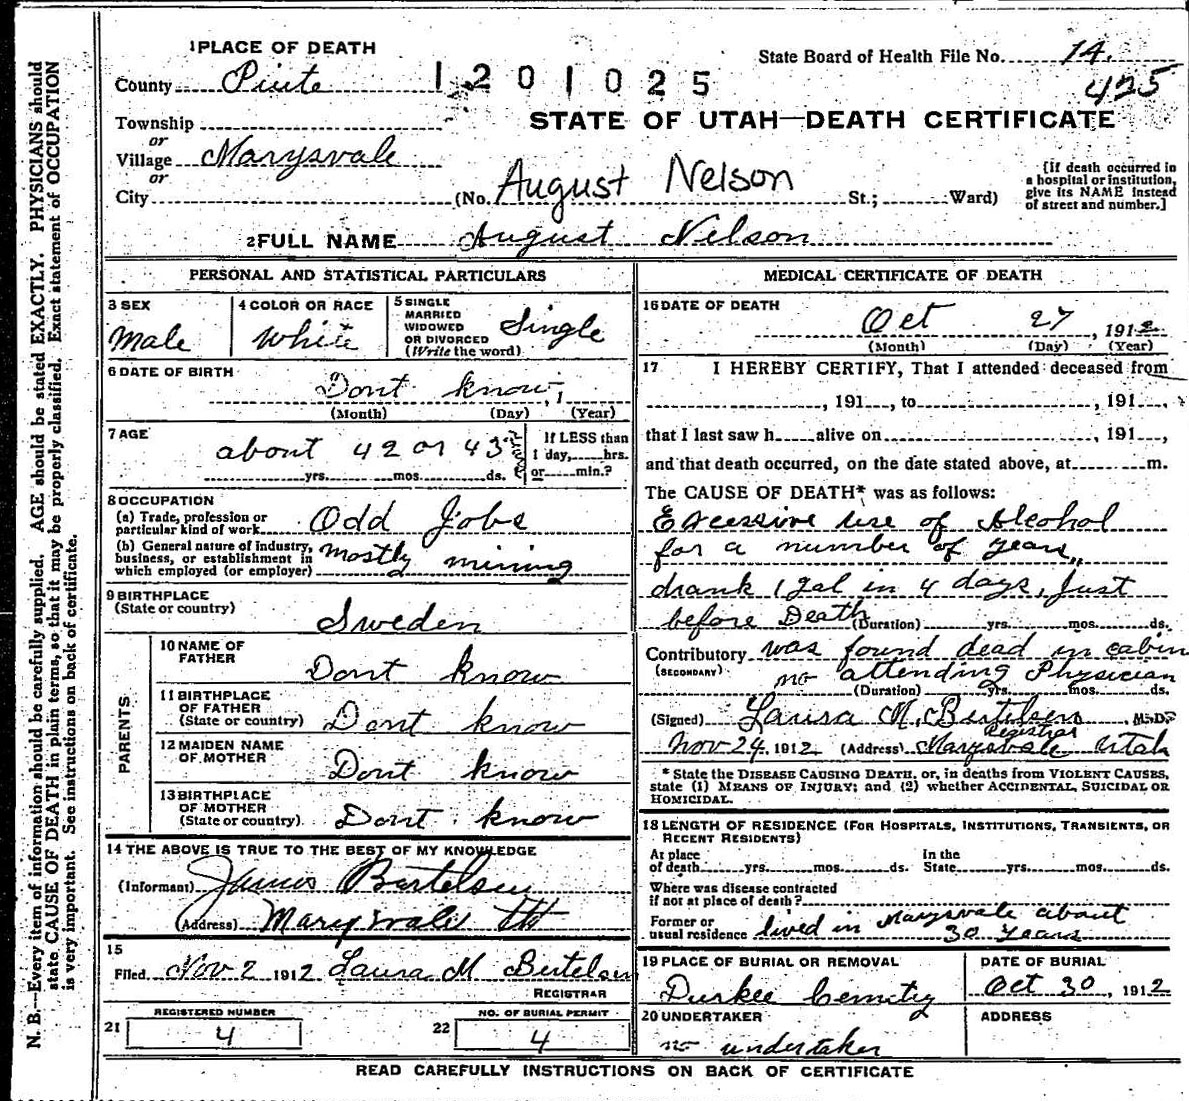 1 PLACE OF DEATH
State Board of Health File No. 14.
County Piute 1201025
425
STATE OF UTAH—DEATH CERTIFICATE
Township
or
Village Marysvale
or
City (No. August Nelson St.; Ward)
[If death occurred in
a hospital or institution,
give its NAME instead
of street and number.]
2 FULL NAME August Nelson
PERSONAL AND STATISTICAL PARTICULARS
3 SEX
Male
4 COLOR OR RACE
White
5 SINGLE
MARRIED
WIDOWED
OR DIVORCED
(Write the word)
Single
6 DATE OF BIRTH
Dont know
(Month) (Day) (Year)
7 AGE
about 42 or 43
yrs. mos. ds.
If LESS than
1 day, hrs.
or min.?
8 OCCUPATION
(a) Trade, profession or
particular kind of work Odd Jobs
(b) General nature of industry,
business, or establishment in
which employed (or employer) mostly mining
9 BIRTHPLACE
(State or country)
Sweden
PARENTS
10 NAME OF
FATHER
Dont know
11 BIRTHPLACE
OF FATHER
(State or country) Dont know
12 MAIDEN NAME
OF MOTHER
Dont know
13 BIRTHPLACE
OF MOTHER
(State or country) Dont know
14 THE ABOVE IS TRUE TO THE BEST OF MY KNOWLEDGE
(Informant) James Bertelsen
(Address) Marysvale Ut
15
Filed Nov 2 1912 Laura M Bertelsen
REGISTRAR
21 REGISTERED NUMBER
4
22 NO. OF BURIAL PERMIT
4
MEDICAL CERTIFICATE OF DEATH
16 DATE OF DEATH
Oct 27, 1912
(Month) (Day) (Year)
17 I HEREBY CERTIFY, That I attended deceased from
, 191 , to , 191 ,
that I last saw h alive on , 191 ,
and that death occurred, on the date stated above, at m.
The CAUSE OF DEATH* was as follows:
Excessive use of Alcohol
for a number of years,
drank 1 gal in 4 days, Just
before Death
(Duration) yrs. mos. ds.
Contributory was found dead in cabin
(SECONDARY) no attending Physician
(Duration) yrs. mos. ds.
(Signed) Laura M. Bertelsen, M. D.
Registrar
Nov 24, 1912 (Address) Marysvale Utah
* State the DISEASE CAUSING DEATH, or, in deaths from VIOLENT CAUSES,
state (1) MEANS OF INJURY; and (2) whether ACCIDENTAL, SUICIDAL OR
HOMICIDAL.
18 LENGTH OF RESIDENCE (FOR HOSPITALS, INSTITUTIONS, TRANSIENTS, OR
RECENT RESIDENTS)
At place
of death yrs. mos. ds.
In the
State yrs. mos. ds.
Where was disease contracted
if not at place of death?
Former or
usual residence lived in Marysvale about
30 years
19 PLACE OF BURIAL OR REMOVAL
Durkee Cemity
DATE OF BURIAL
Oct 30, 1912
20 UNDERTAKER
no undertaker
ADDRESS
READ CAREFULLY INSTRUCTIONS ON BACK OF CERTIFICATE
N. B.—Every item of information should be carefully supplied. AGE should be stated EXACTLY. PHYSICIANS should
state CAUSE OF DEATH in plain terms, so that it may be properly classified. Exact statement of OCCUPATION
is very important. See instructions on back of certificate.